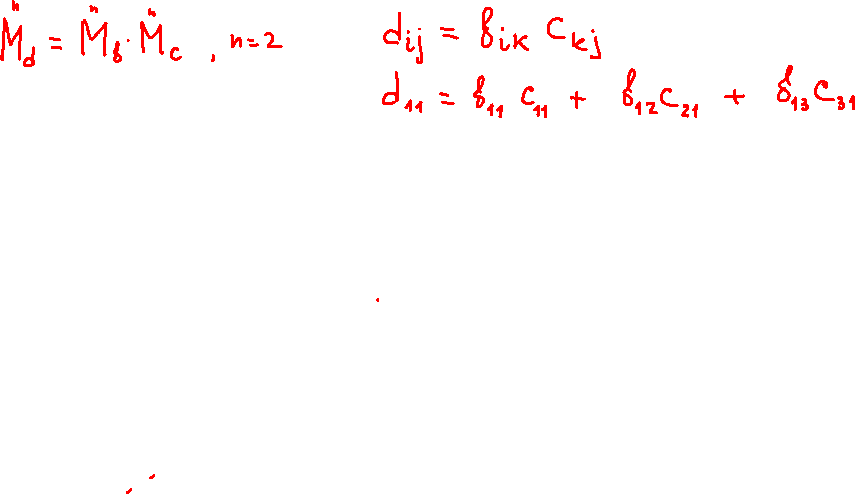 ⁿM_d = ⁿM_в · ⁿM_c , n=2
d_ij = в_ik c_kj
d_11 = в_11 c_11 + в_12 c_21 + в_13 c_31